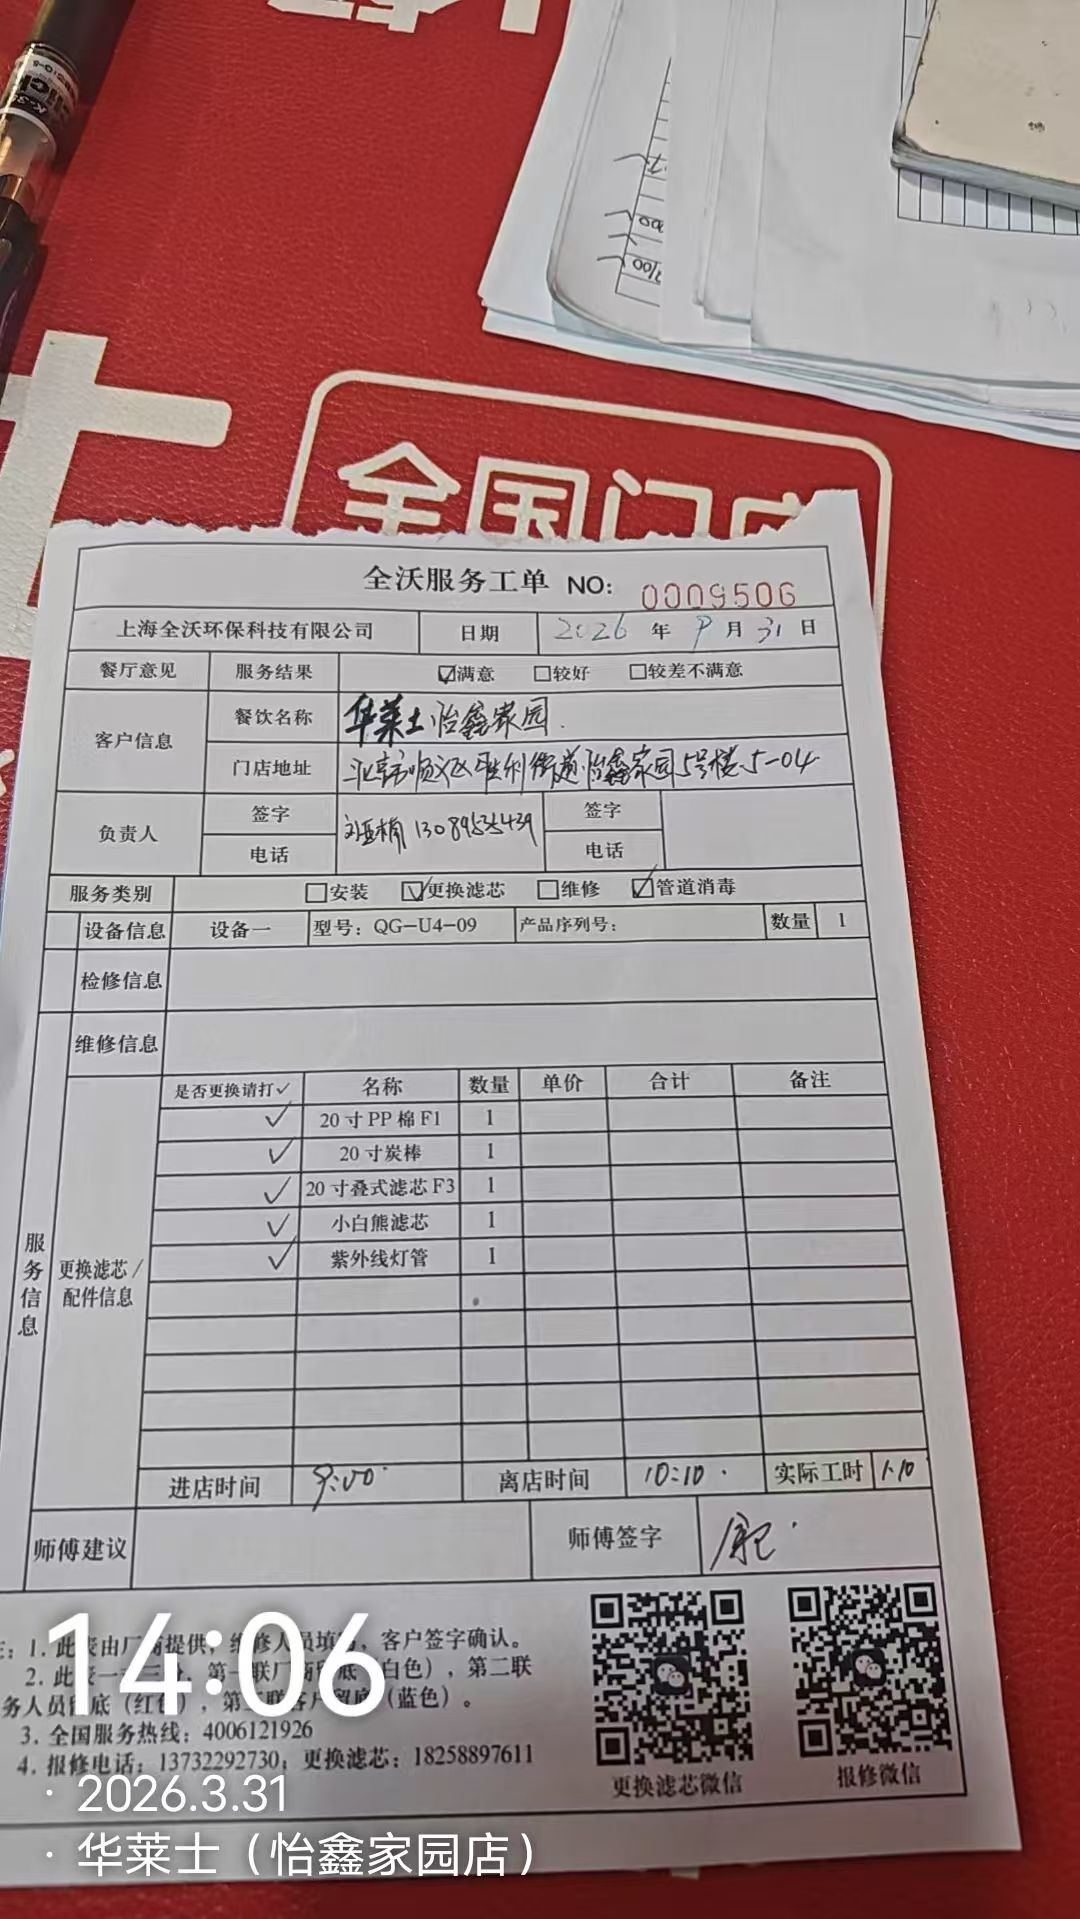 全国门店
全沃服务工单 NO: 0009506
上海全沃环保科技有限公司 日期 2026 年 月 31 日
餐厅意见 服务结果 ☑满意 □较好 □较差不满意
客户信息 餐饮名称 华莱士怡鑫家园
门店地址 北京市顺义区胜利街道怡鑫家园5号楼5-04
负责人 签字 签字
电话 13089535439 电话
服务类别 □安装 ☑更换滤芯 □维修 ☑管道消毒
设备信息 设备一 型号：QG-U4-09 产品序列号： 数量 1
检修信息
维修信息
是否更换请打✓ 名称 数量 单价 合计 备注
✓ 20寸PP棉F1 1
✓ 20寸炭棒 1
✓ 20寸叠式滤芯F3 1
✓ 小白熊滤芯 1
✓ 紫外线灯管 1
服务信息
更换滤芯/
配件信息
进店时间 9:00 离店时间 10:10 实际工时 1·10
师傅建议 师傅签字
14:06
1. 此表由厂商提供，维修人员填写，客户签字确认。
2. 此表一式三联，第一联厂商留底（白色），第二联
务人员留底（红色），第三联客户留底（蓝色）。
3. 全国服务热线：4006121926
4. 报修电话：13732292730；更换滤芯：18258897611
更换滤芯微信 报修微信
· 2026.3.31
· 华莱士（怡鑫家园店）